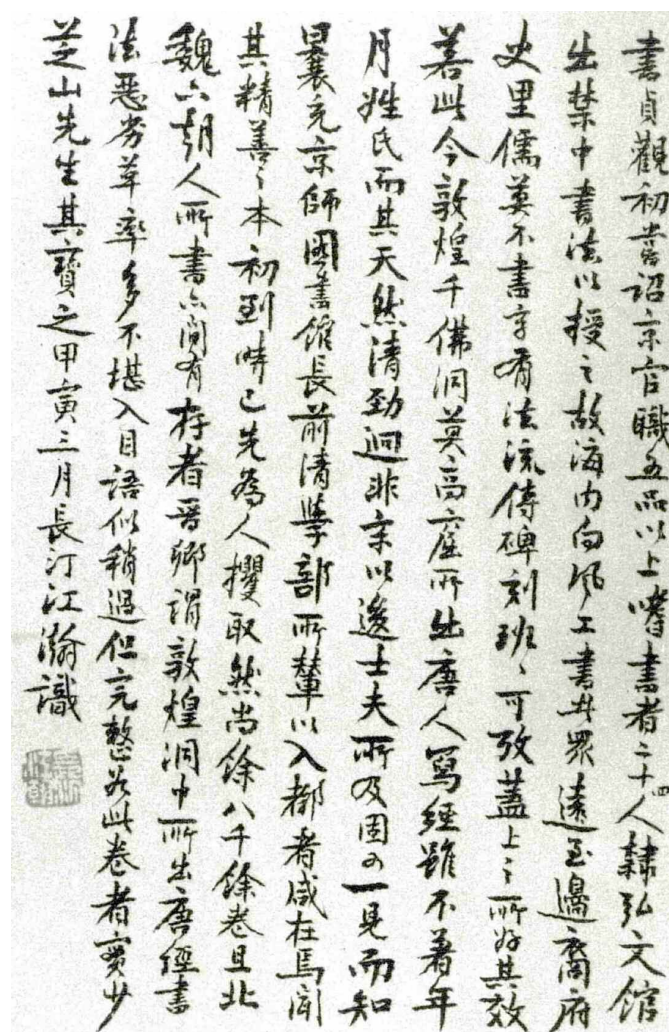 書貞觀初嘗詔京官職五品以上嗜書者二十四人隸弘文館
出禁中書法以授之故海内向風工書者眾遠至邊裔府
史里儒莫不書字有法流傳碑刻班〻可攷蓋上之所好其效
若此今敦煌千佛洞莫高窟所出唐人寫經雖不著年
月姓氏而其天然清勁迥非宋以後士夫所及固可一見而知
曩充京師圖書館長前清學部所輦以入都者咸在焉聞
其精善之本初到時已先為人攫取然尚餘八千餘卷且北
魏六朝人所書亦間有存者晉卿謂敦煌洞中所出唐經書
法惡劣草率多不堪入目語似稍過但完整若此卷者實少
芝山先生其寶之甲寅三月長汀江瀚識